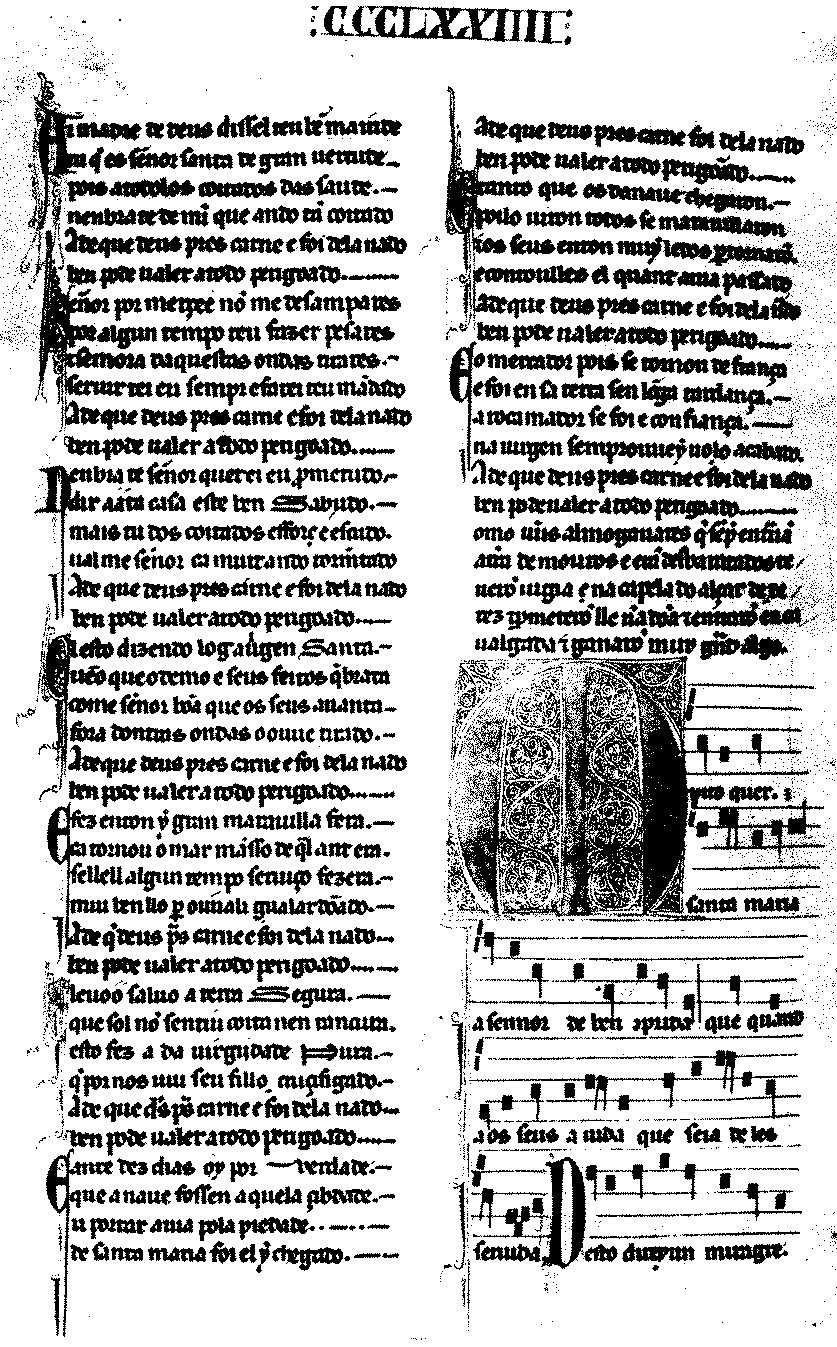 CCCLXXIIII
Ai madre de deus diss el ten ben mamẽte
tu q̃ es sẽnor santa de gran uertude
pois atodolos coitados das saude.
nenbrate de mi que ando tã coitado
Ade que deus pres carne e foi dela nado
ben pode ualer a todo perigoado
Sẽnor por merçee nõ me desampares
por algun tempo teu fazer pesares
e se mora daquestas ondas tirares.
seruir tei eu sempr e farei teu mãdado
Ade que deus pres carne e foi dela nado
ben pode ualer a todo perigoado
Nenbra te sẽnor que rei eu p̃metudo
dir aata casa este ben Sabudo.
mais tu dos coitados
ual me sẽnor ca muit ando tormẽtado
Ade que deus pres carne e foi dela nado
ben pode ualer a todo perigoado
El esto dizendo log a uirgen Santa.
uẽo que o demo e seus feitos q̃branta
come sẽnor bõa que os seus auanta
fora dontras ondas o ouue tirado.
Ade que deus pres carne e foi dela nado
ben pode ualer a todo perigoado
E fez enton ỹ gran marauilla fera.
ca tornou o mar mãsso de q̃l ant era.
sell ell algun tempo seruiço fezera.
mui ben llo p̱ ouuali gualardõado.
Ade q̃ deus p̃s carne e foi dela nado
ben pode ualer a todo perigoado
Leuoo saluo a terra Segura.
que sol nõ sentiu coita nen rancura.
esto fez a da uirgĩidade Pura.
q̃ por nos uiu seu fillo cruçifigado.
Ade que ds̃ p̃s carne e foi dela nado
ben pode ualer a todo perigoado
E ante dez dias oy por uerdade.
que a naue fossen aquela çibdade.
u portar auia pola piedade.
de santa maria foi el ỹ chegado.
Ade que deus pres carne e foi dela nado
ben pode ualer a todo perigoado
E tanto que os da naue chegaron.
poilo uiron todos se marauillaron
dos seus enton muy ledos
e contoulles el quant auia passado
Ade que deus pres carne e foi dela nado
ben pode ualer a todo perigoado
E o mercador pois se tornou de frança
e foi en sa terra sen lõga tardança.
a rocamador se foi e con fiança.
na uirgen sempr ouuey uolo acabado.
Ade que deus pres carne e foi dela nado
ben pode ualer a todo perigoado
Como uũs almogauares q̃ sẽp̃ entrauã
a terra de mouros e erã desbaratados
uerõ uigia ẽ na capela do alcaçar de xe
rez e p̃meterõ lle
ualgada i ganarõ muy grã algo.
Muito quer.
santa maria
a sennor de ben aprida que quand
a os seus a uida que seia deles
seruida. Desto dureyun miragre.